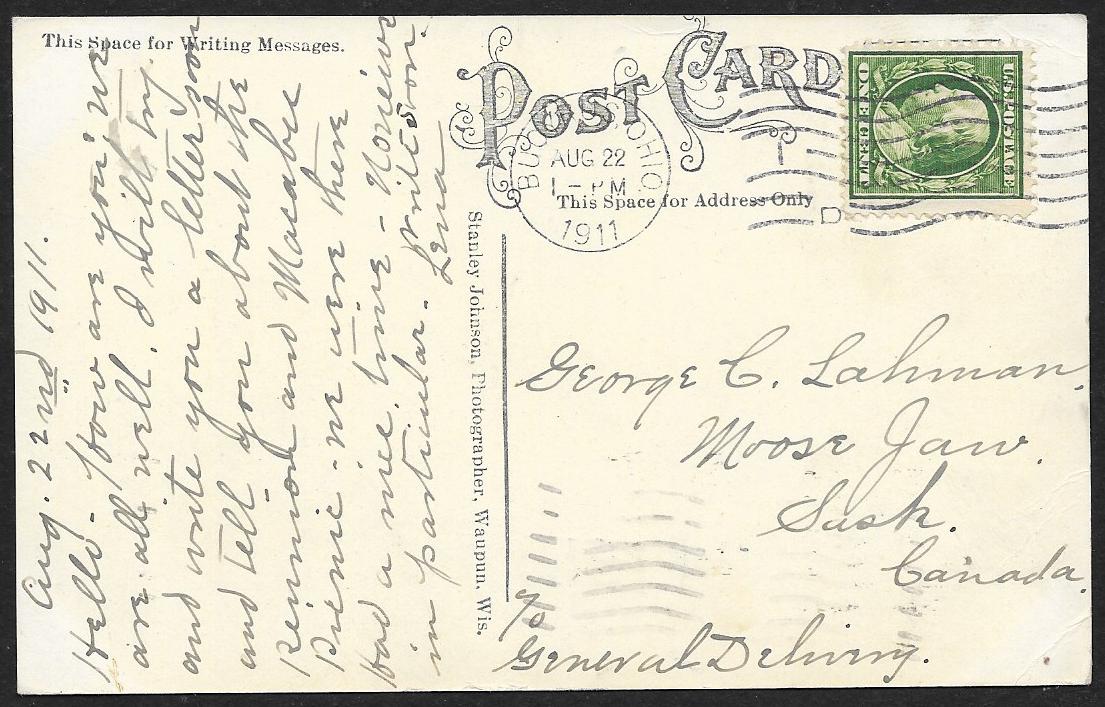 This Space for Writing Messages.
Aug. 22nd 1911.
Hello- How are you, we
are all well. I will try.
and write you a letter soon
and tell you about the
Reunion and Macabee
Picnic - we were there
had a nice time - No news
in particular. Write soon.
Lena
Stanley Johnson, Photographer, Waupun, Wis.
POST CARD
OHIO
AUG 22
1 - PM
1911
U.S. POSTAGE
ONE CENT
This Space for Address Only
George C. Lahman,
Moose Jaw.
Sask.
Canada
℅
General Delivery.